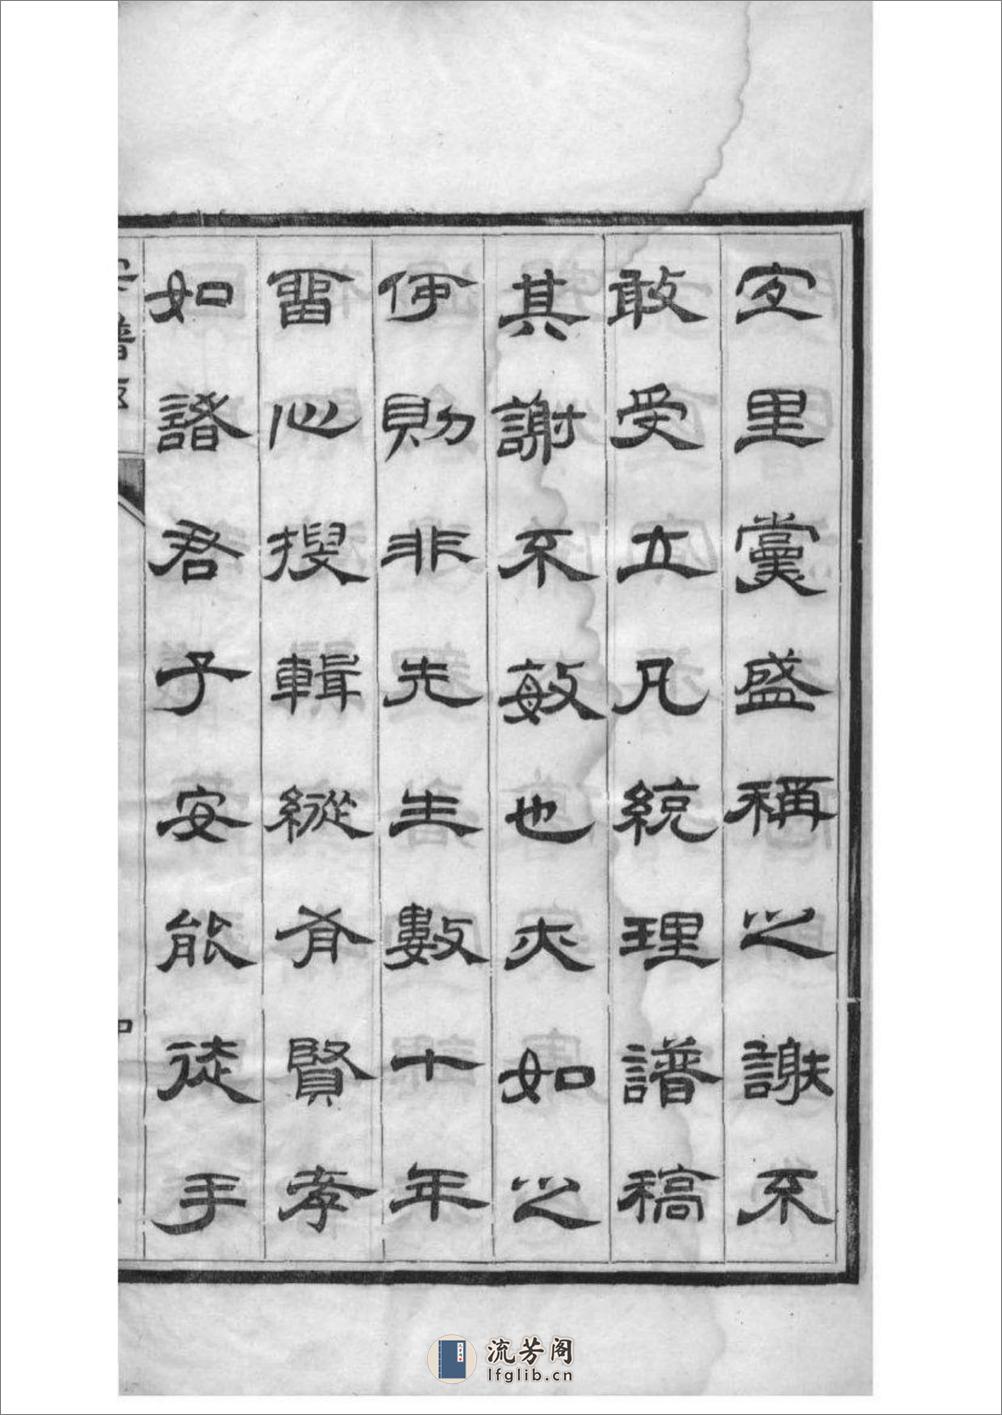 里黨盛稱之謝不
敢受立凡統理譜稿
其謝不敏也亦如之
伊則非先生數十年
畱心搜輯縱有賢孝
如諸君子安能徒手
流芳阁
lfglib.cn